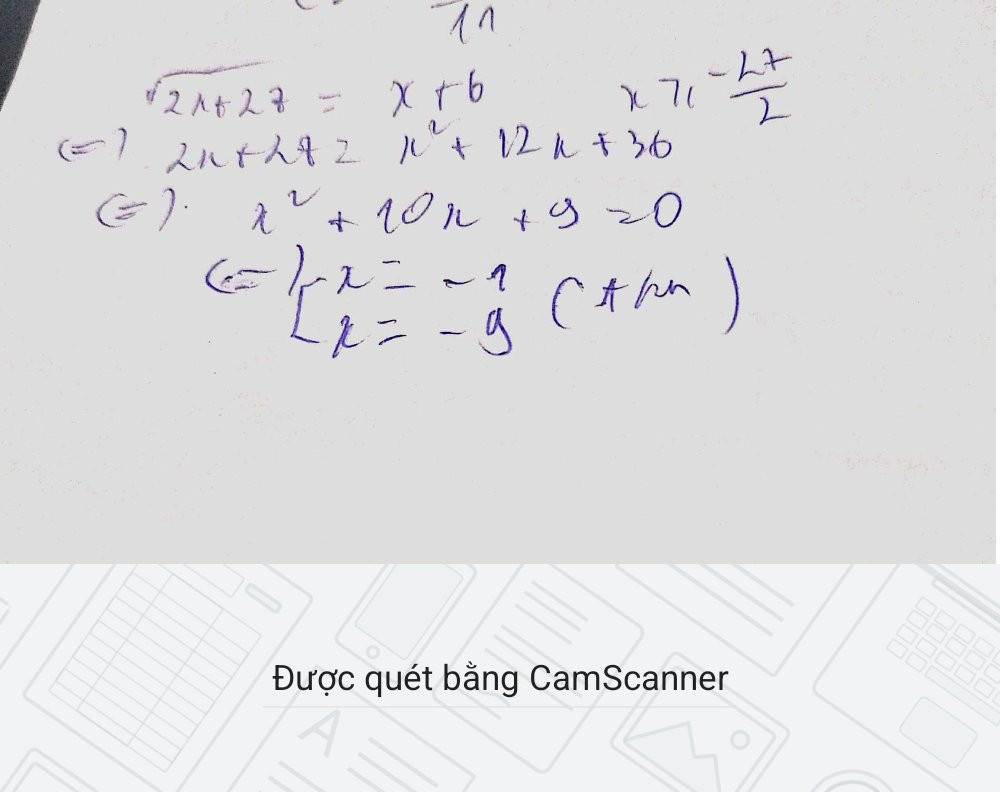 11
√2x+27 = x+6 x ≥ -27/2
<=> 2x+27 = x² + 12x + 36
<=> x² + 10x + 9 = 0
<=> [ x = -1
x = -9 (tm)
Được quét bằng CamScanner